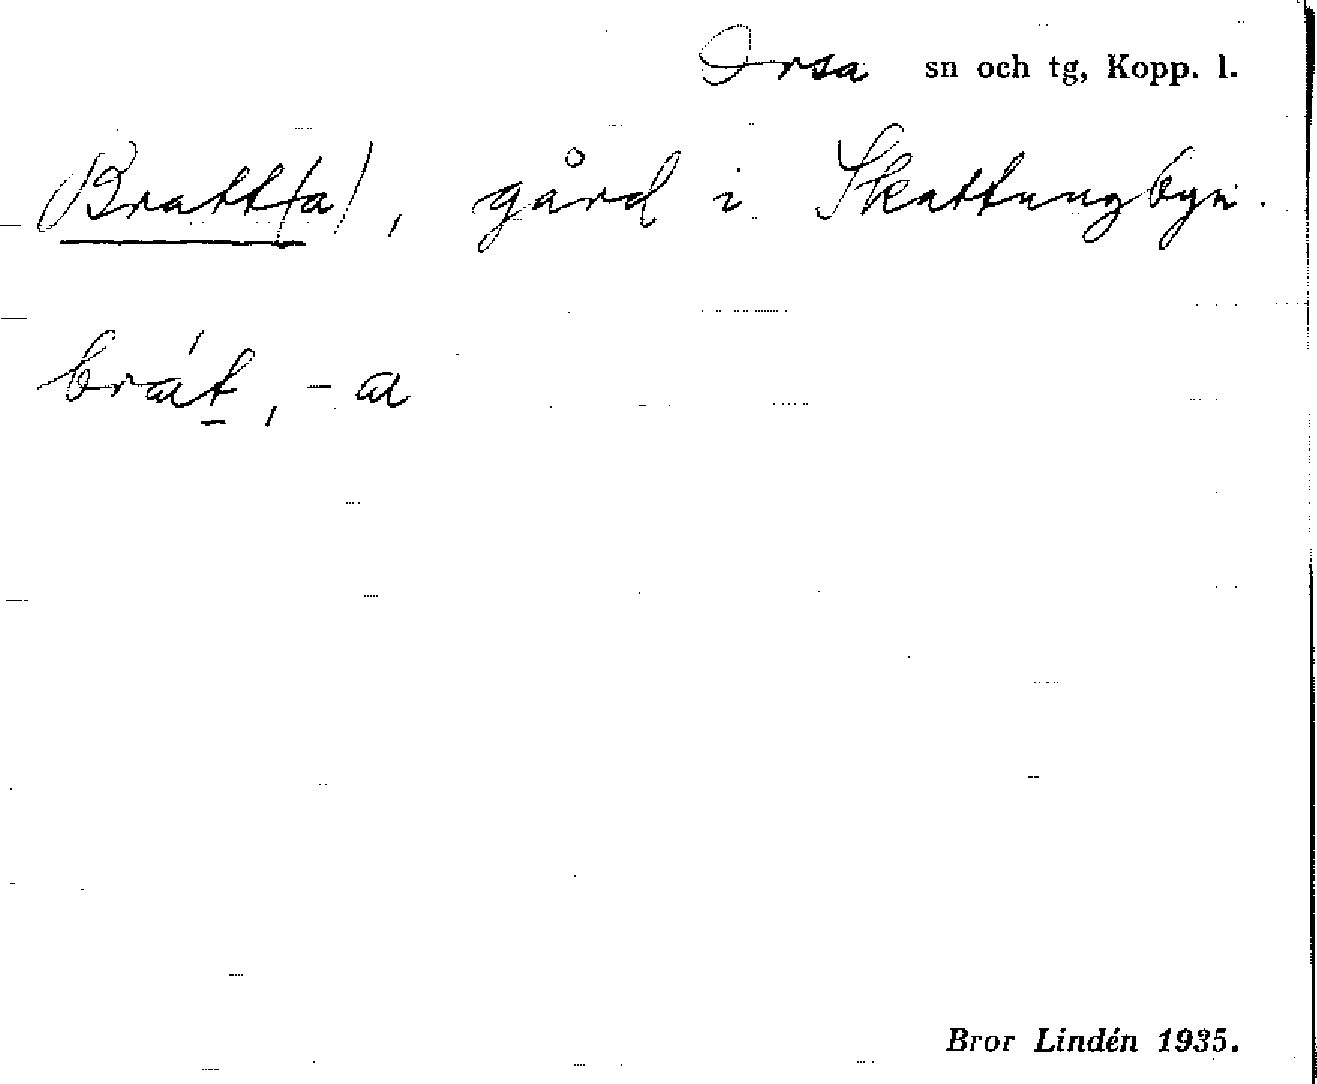 Orsa sn och tg, Kopp. l.
Bratt(a), gård i Skattungbyn.
bràt̲, -a
Bror Lindén 1935.